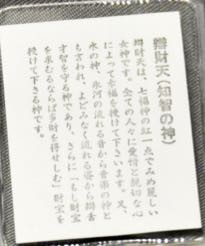 辯財天(知智の神)
辯財天は、七福神の紅一点でみめ麗しい
女神です。全ての人々に愛情と親切な心
によって幸福を授けて下さいます。又、
水の神、氷河の流れる音から音楽の神と
も言われ、よどみなく流れる姿から辯舌
才智を守る神であり、さらに「もし財宝
を求むるならば多財を得せしむ」財宝を
授けて下さる神です。